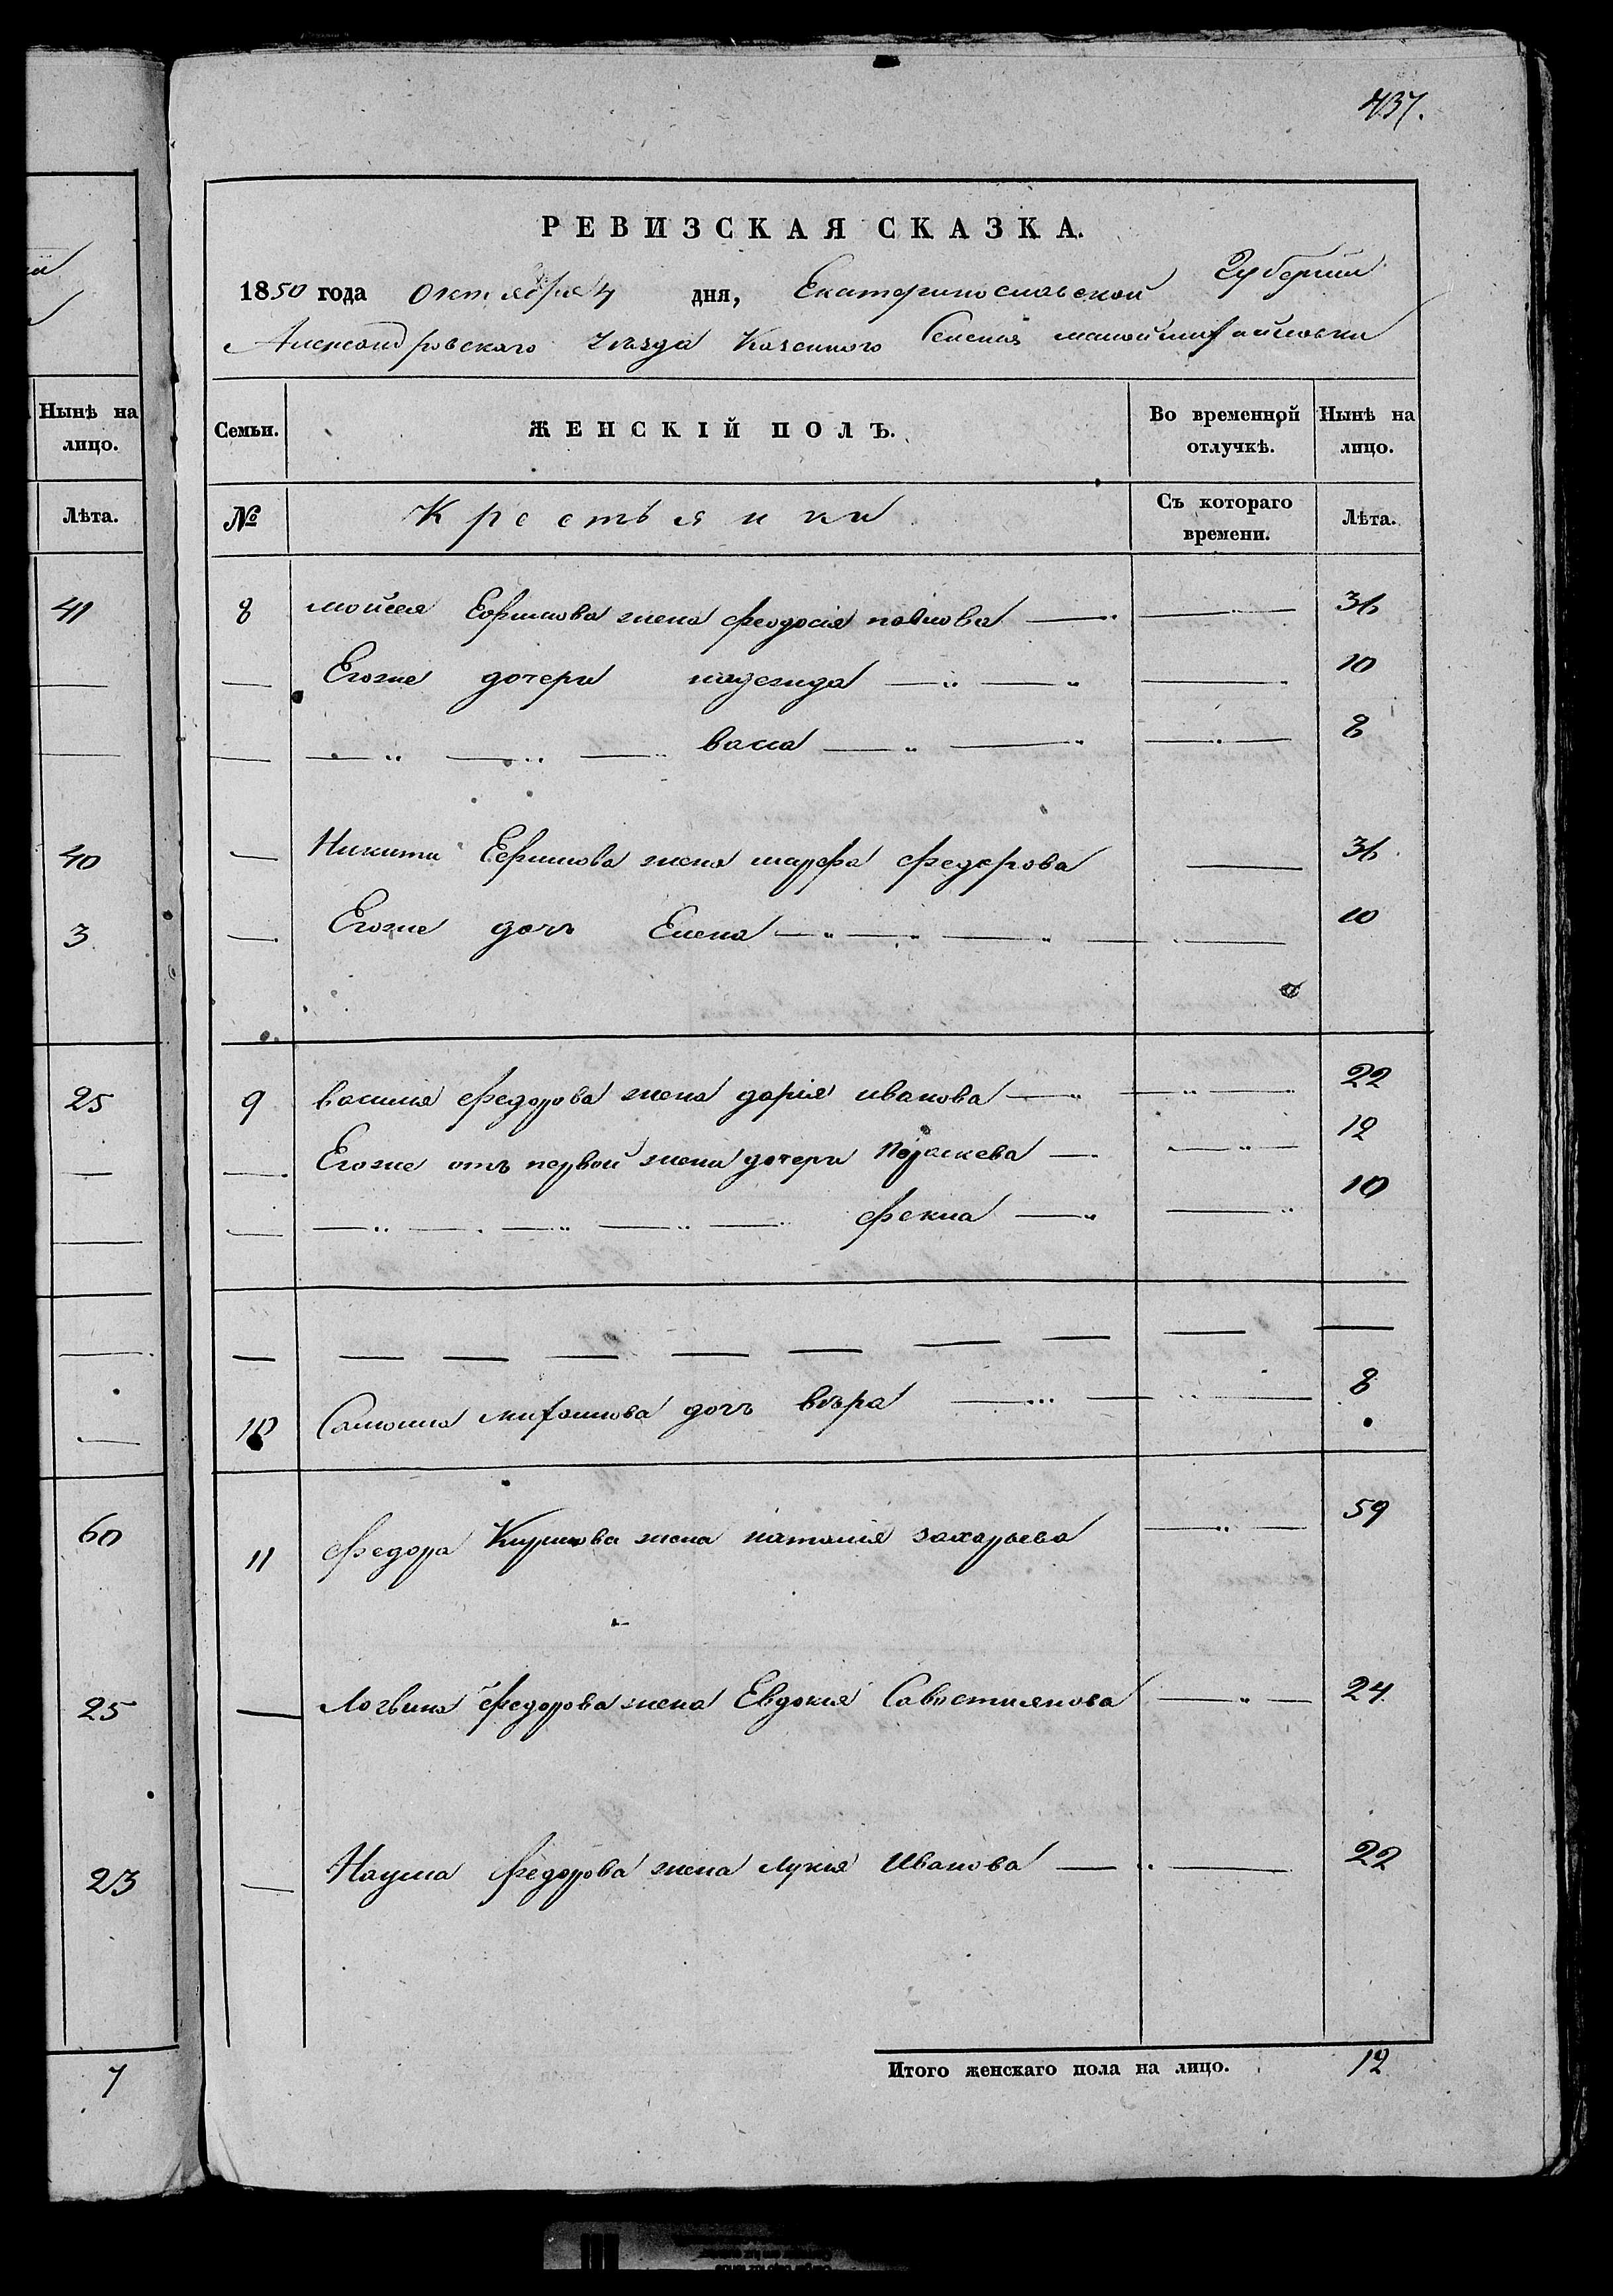 437.
РЕВИЗСКАЯ СКАЗКА.
1850 года Октября 4 дня, Екатеринославской Губернии
Александровскаго Уезда Казенного Селения малой михайловки
Нынѣ на лицо.
Семьи. ЖЕНСКІЙ ПОЛЪ. Во временной отлучкѣ. Нынѣ на лицо.
Лѣта.
№ Крестьянки Съ котораго времени. Лѣта.
41
8 мойсея Ефимова жена феодосия павлова — — 36
— Егоже дочери надежда — — — 10
— — „ — „ — васса — „ — — 8
40
— Никиты Ефимова жена марфа федорова — 36
3
— Егоже дочь Елена — „ — „ — „ — 10
25
9 василия федорова жена дария иванова — „ — 22
— Егоже отъ первой жены дочери Параскева — — „ — 12
— — „ — „ — „ — „ — фекла — „ — „ 10
— — — — — — — — — —
10 Самойла михайлова дочь вѣра — — 8
60
11 федора Кирилова жена наталия захарьева — „ — 59
25
— Логвина федорова жена Евдокия Савостиянова — „ — 24
23
— Наума федорова жена лукия Иванова — „ — 22
7
Итого женскаго пола на лицо. 12